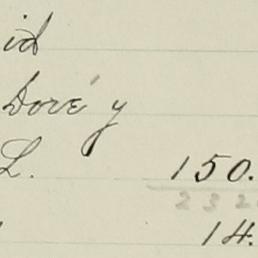 id
Doré y
L. 150.
2 3 2
14.